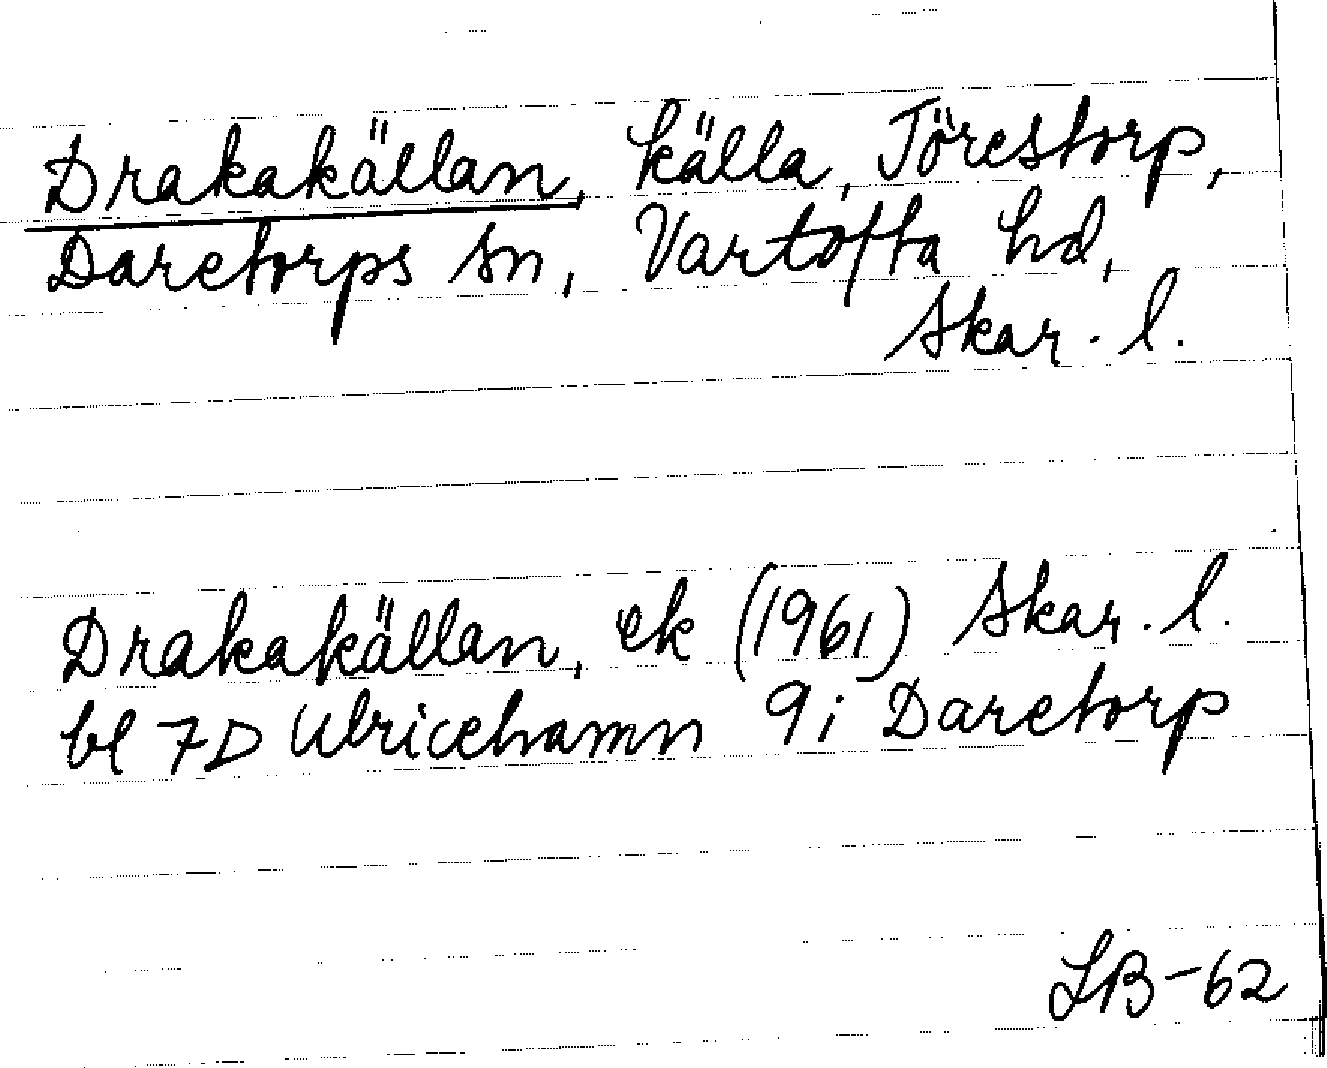 Drakakällan, källa, Törestorp,
Daretorps sn, Vartofta hd,
Skar. l.
Drakakällan, ek (1961) Skar. l.
bl 7D Ulricehamn 9i Daretorp
LB-62